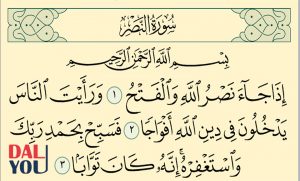 سُورَةُ النَّصْرِ
بِسْمِ اللَّهِ الرَّحْمَٰنِ الرَّحِيمِ
إِذَا جَاءَ نَصْرُ اللَّهِ وَالْفَتْحُ ١ وَرَأَيْتَ النَّاسَ
يَدْخُلُونَ فِي دِينِ اللَّهِ أَفْوَاجًا ٢ فَسَبِّحْ بِحَمْدِ رَبِّكَ
وَاسْتَغْفِرْهُ إِنَّهُ كَانَ تَوَّابًا ٣
DAL
YOU